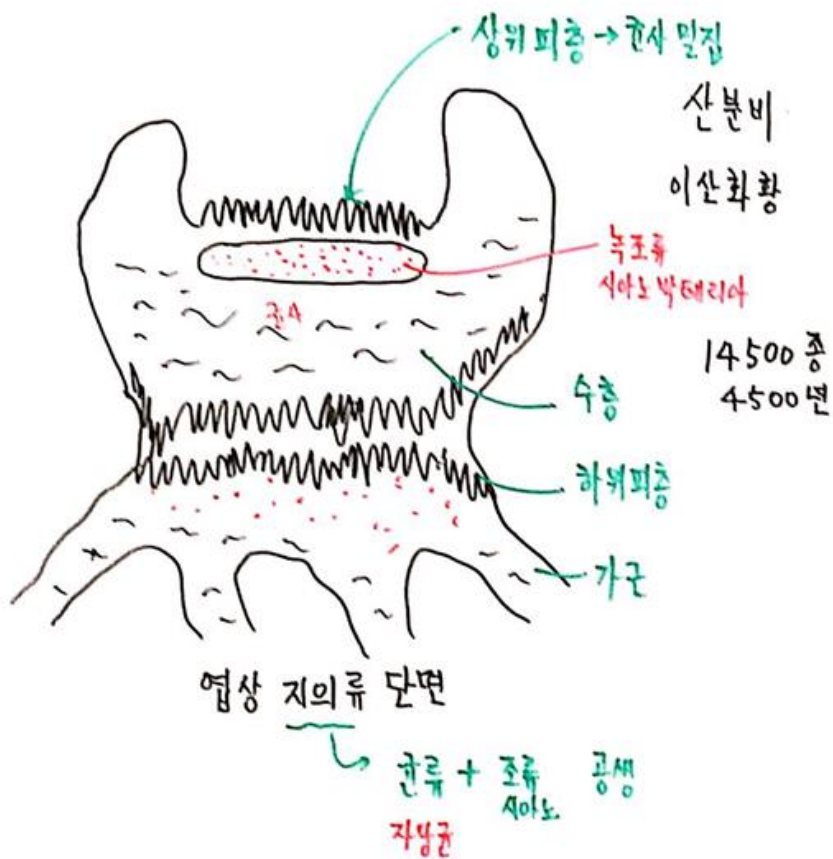 상위피층 → 균사 밀집
산분비
이산화황
녹조류
시아노박테리아
균사
14500종
4500년
수층
하위피층
가근
엽상 지의류 단면
균류 + 조류 공생
시아노
자낭균